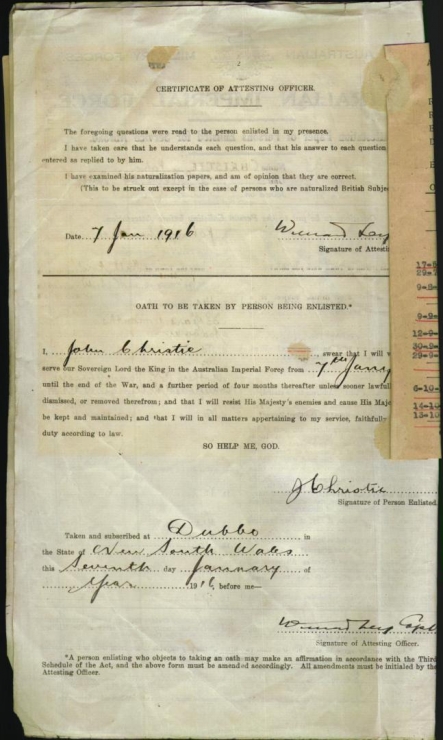 2
CERTIFICATE OF ATTESTING OFFICER.
The foregoing questions were read to the person enlisted in my presence.
I have taken care that he understands each question, and that his answer to each question
entered as replied to by him.
I have examined his naturalization papers, and am of opinion that they are correct.
(This to be struck out except in the case of persons who are naturalized British Subje
Date 7 Jan 1916
Signature of Attesti
OATH TO BE TAKEN BY PERSON BEING ENLISTED.*
I, John Christie swear that I will
serve our Sovereign Lord the King in the Australian Imperial Force from 7th Jany
until the end of the War, and a further period of four months thereafter unless sooner lawful
dismissed, or removed therefrom; and that I will resist His Majesty's enemies and cause His Maje
be kept and maintained; and that I will in all matters appertaining to my service, faithfully
duty according to law.
SO HELP ME, GOD.
J Christie
Signature of Person Enlisted.
Taken and subscribed at Dubbo in
the State of New South Wales
this Seventh day January of
Year 1916 before me—
Capt
Signature of Attesting Officer.
*A person enlisting who objects to taking an oath may make an affirmation in accordance with the Third
Schedule of the Act, and the above form must be amended accordingly. All amendments must be initialed by the
Attesting Officer.
17-5
29-7
9-8-
9-9-
12-9-
30-9-
29-9-
6-10-
14-10
13-10